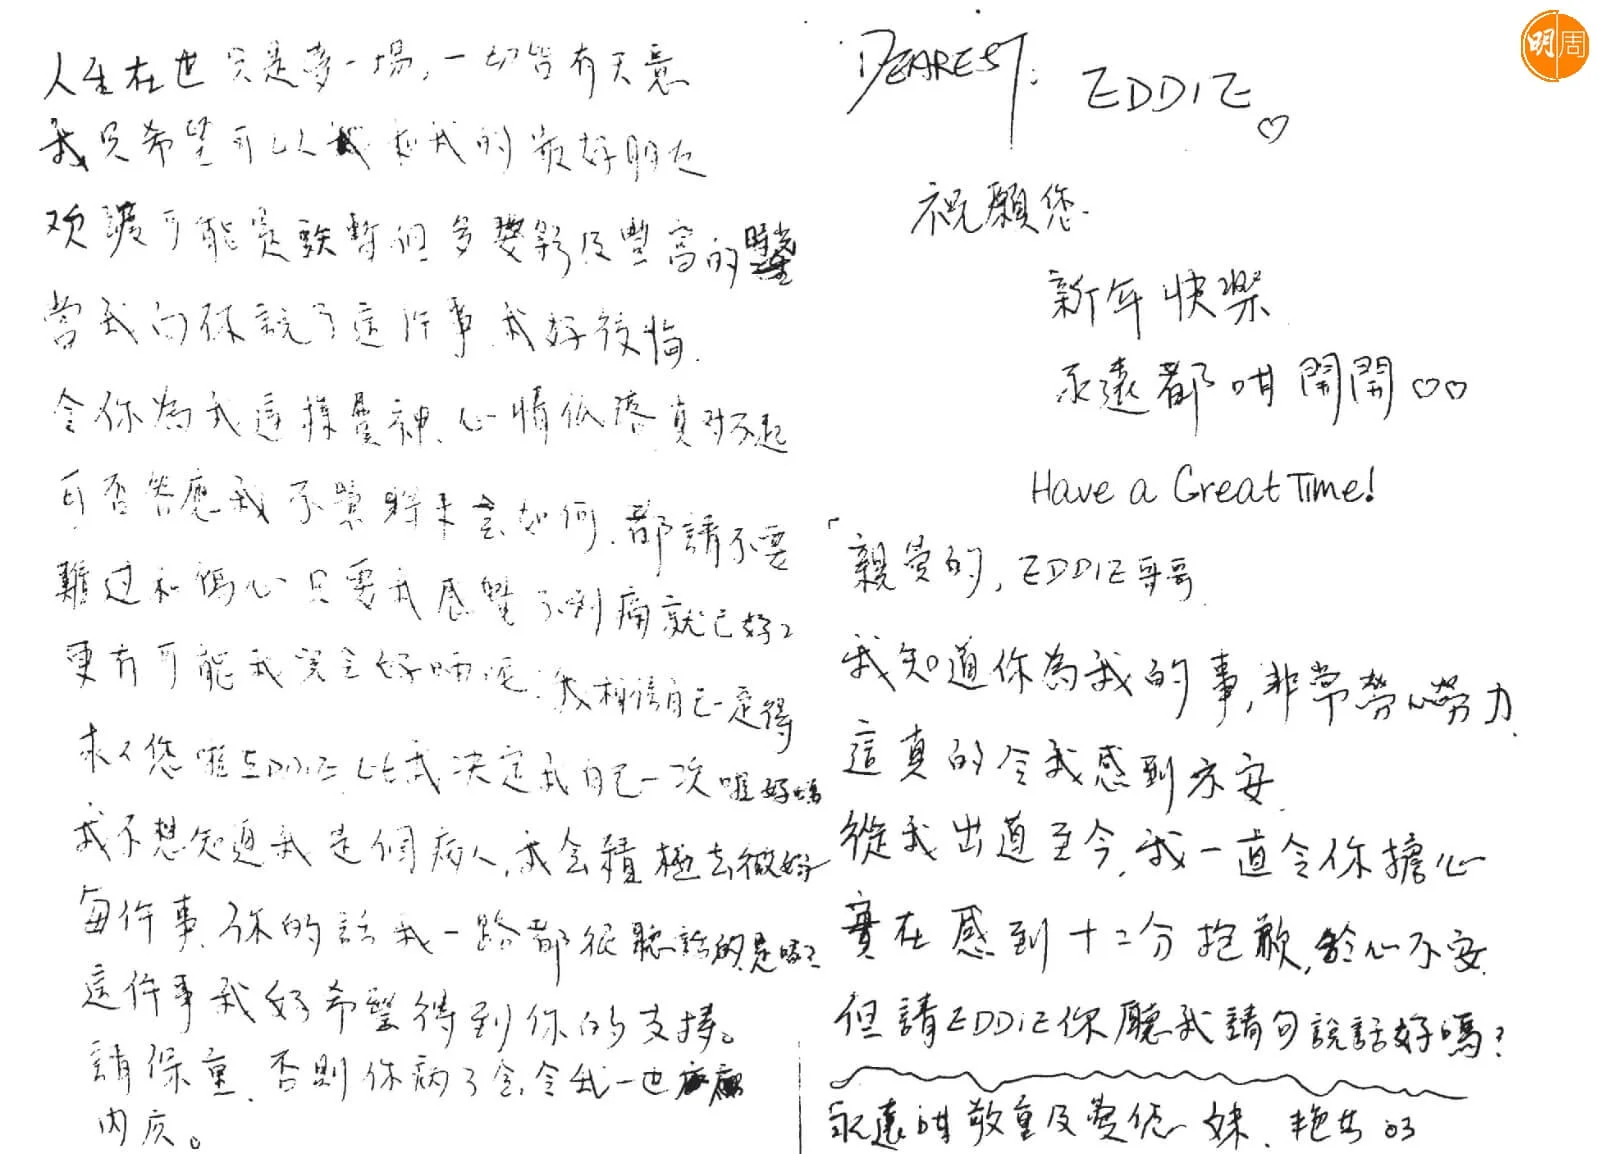 DEAREST:
EDDIE ♡
祝願您
新年快樂
永遠都咁開開♡♡
Have a Great Time!
「親愛的, EDDIE哥哥
我知道你為我的事,非常勞心勞力
這真的令我感到不安
從我出道至今,我一直令你擔心
實在感到十二分抱歉,於心不安
但請EDDIE你聽我請句說話好嗎?
永遠咁敬重及愛您 妹 艷芳 03
人生在世只是夢一場,一切皆有天意
我只希望可以和我的最好朋友
歡渡可能是短暫但多要彩及豐富的時光
當我向你說了這件事 我好後悔
令你為我這樣 神、心情低落 真對不起
可否答應我不管將來會如何、都請不要
難过和傷心 只要我感覺不到痛就已好
更有可能我完全好晒呢,我相信自己一定得
求下您啦EDDIE 比我決定我自己一次啦好嗎
我不想知道我是個病人,我会積極去做好
每件事、你的話我一路都很聽話的是嗎?
這件事我好希望得到你的支持。
請保重、否則你病了会令我一世
內疚。
明周